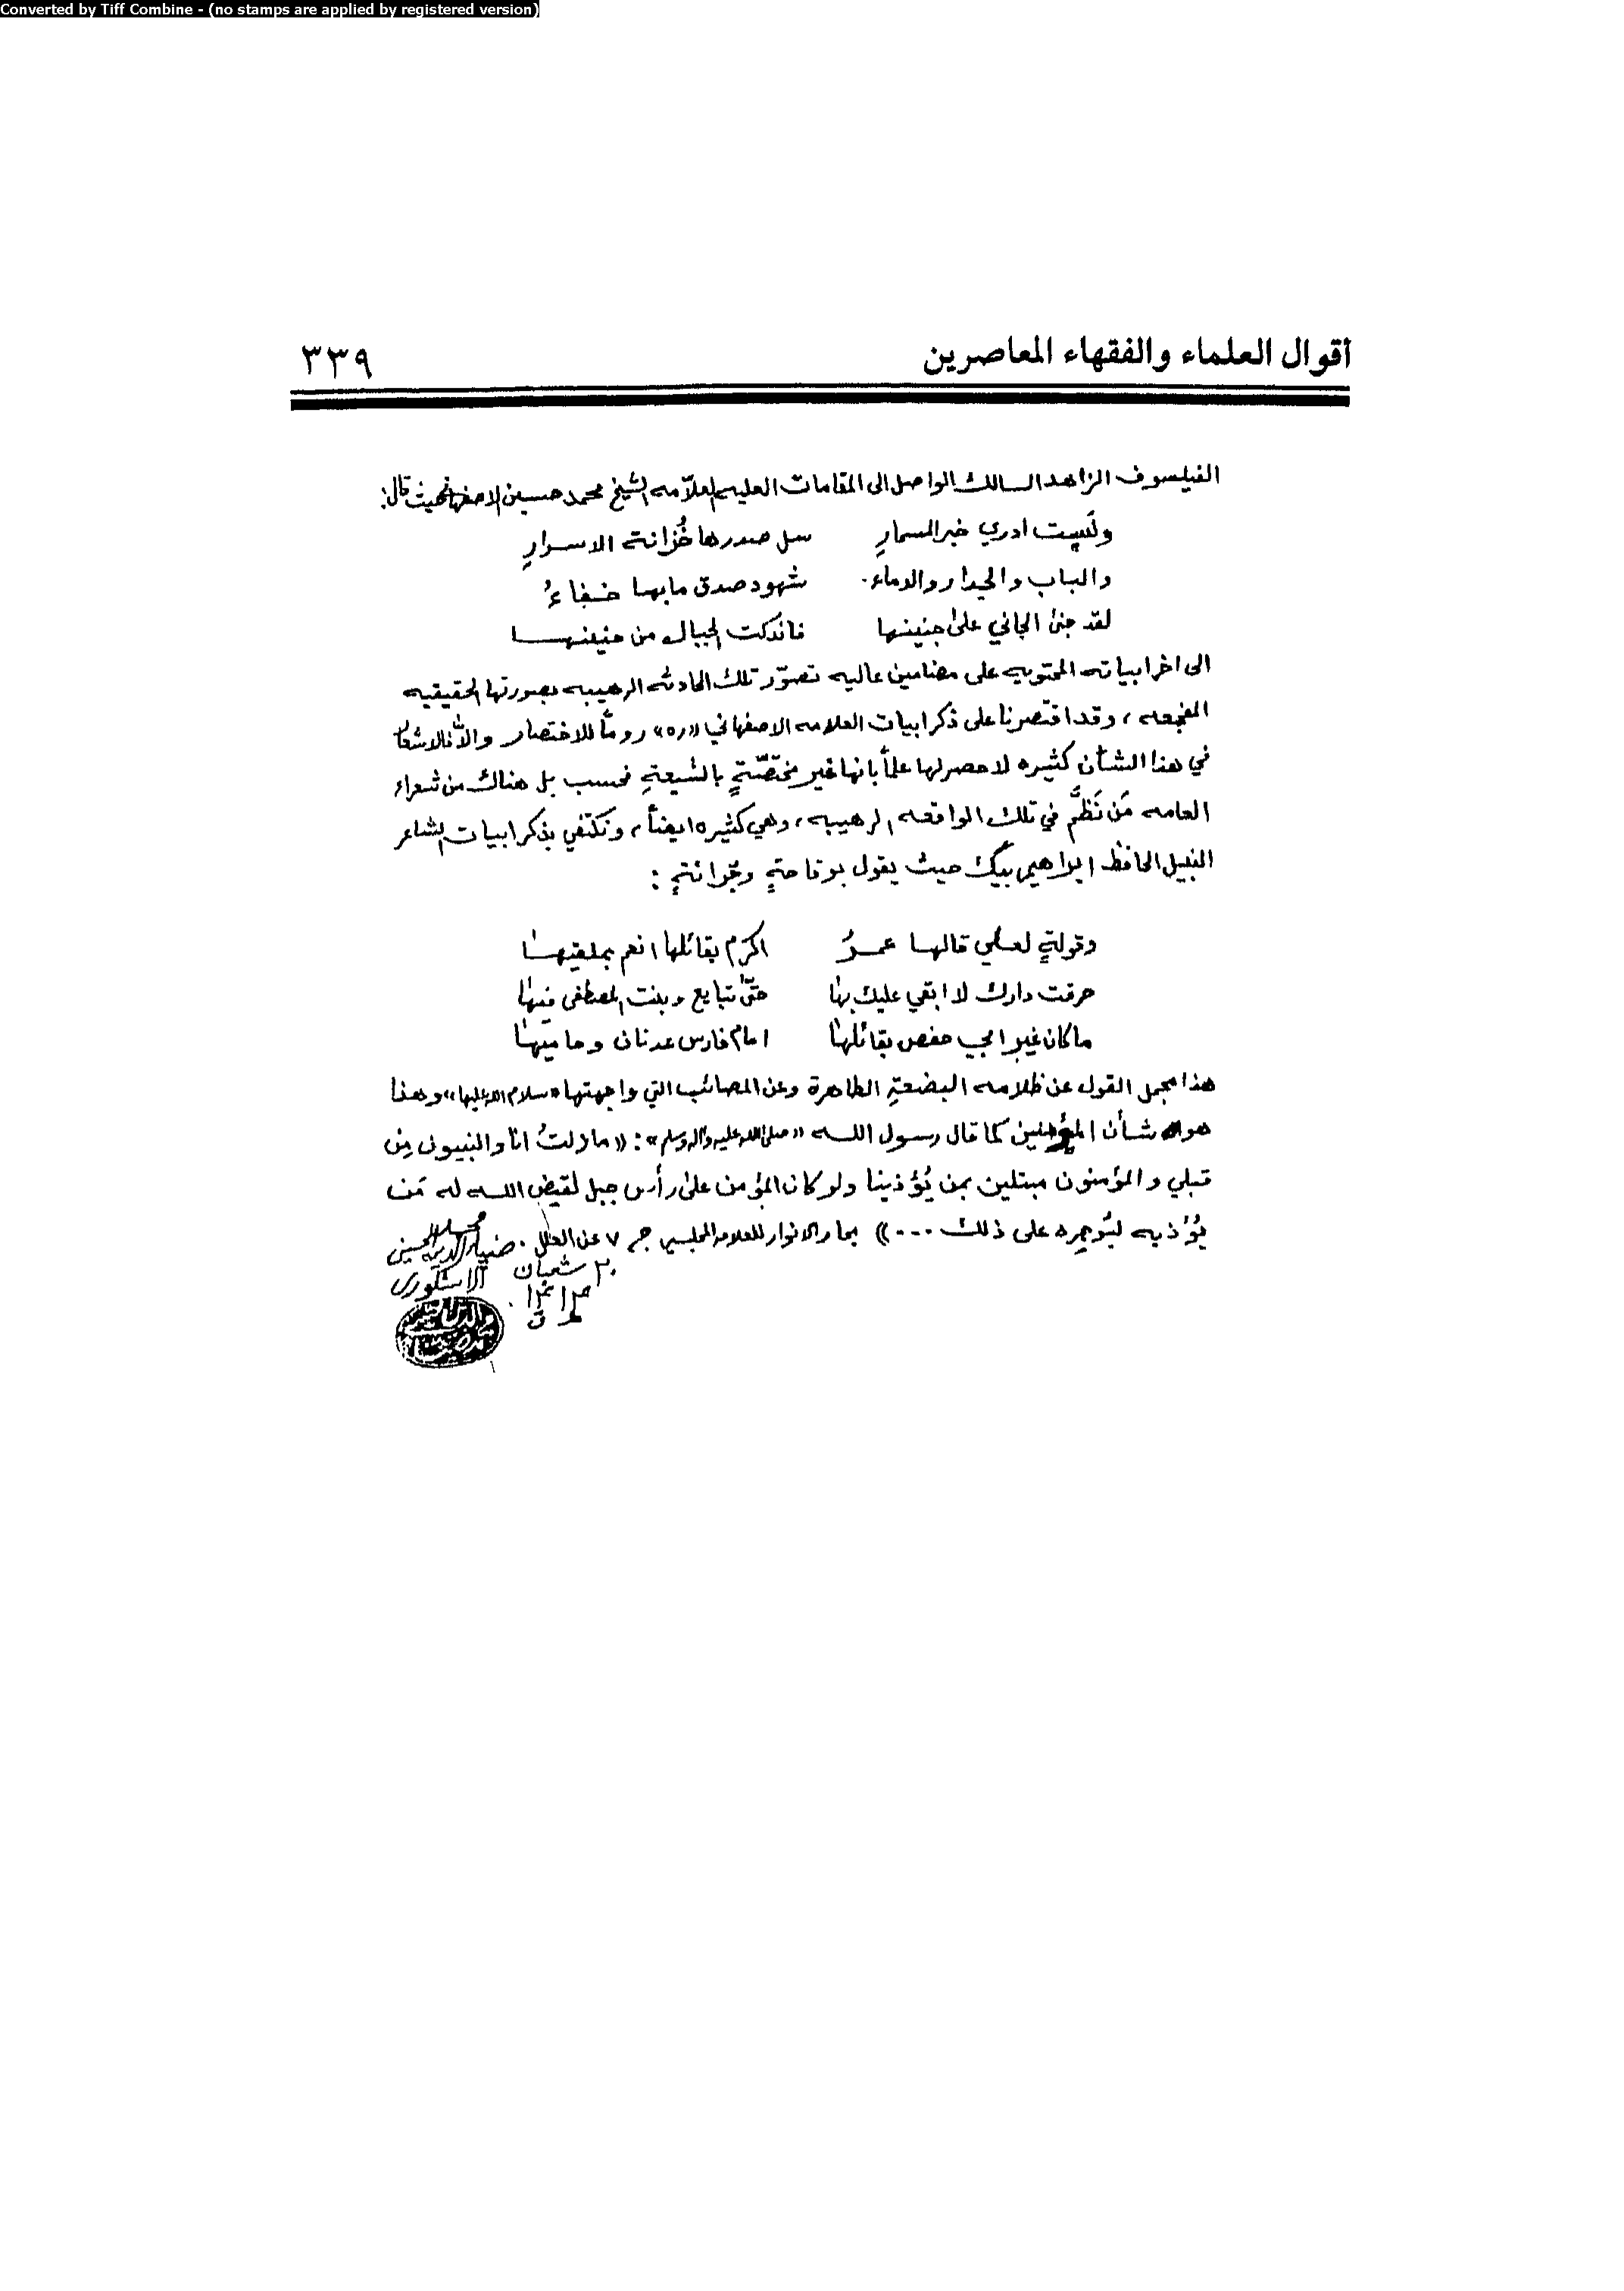 Converted by Tiff Combine - (no stamps are applied by registered version)
أقوال العلماء والفقهاء المعاصرين ٣٣٩
الفيلسوف الزاهد السالك الواصل الى المقامات العليه العلّامه الشيخ محمد حسين الاصفهاني حيث قال:
ولَست ادري خبر المسمارِ سل صدرها خُزانة الاسرارِ
والباب والجدار والدماء شهود صدق ما بها خفاءُ
لقد جنىٰ الجاني علىٰ جنينها فاندكت الجبال من حنينها
الى اخر ابياته المحتويه على مضامين عاليه تصوّر تلك الحادثه الرهيبه بصورتها الحقيقيه
المفجعه، وقد اقتصرنا على ذكر ابيات العلامه الاصفهاني «ره» روماً للاختصار والّا فالاشعار
في هذا الشأن كثيره لا حصر لها علماً بانها غير مختصّةٍ بالشيعةِ فحسب بل هناك من شعراء
العامه مَن نَظَمَ في تلك الواقعه الرهيبه، وهي كثيره ايضاً، ونكتفي بذكر ابيات الشاعر
النبيل الحافظ ابراهيم بيك حيث يقول بوقاحةٍ وجرائةٍ :
وقولةٍ لعلي قالها عمرُ اكرم بقائلها انعم بملقيها
حرقت دارك لا ابقي عليك بها حتىّٰ تبايع وبنت المصطفى فيها
ما كان غير ابي حفص بقائلها امام فارس عدنان وحاميها
هذا مجمل القول عن ظلامه البضعةِ الطاهرة وعن المصائب التي واجهتها «سلام الله عليها» وهذا
هو شأن المؤمنين كما قال رسول الله «صلى الله عليه وآله وسلم»: «ما زلتُ انا والنبيون مِن
قبلي والمؤمنون مبتلين بمن يُؤذينا ولو كان المؤمن علىٰ رأس جبل لقيض الله له مَن
يُؤذيه ليُوجره على ذلك ...» بحار الانوار للعلامه المجلسي ج ٧ عن العلل . ضياء الدين الحسيني
٢٠ شعبان الاشكوري
١٤١٣
ق